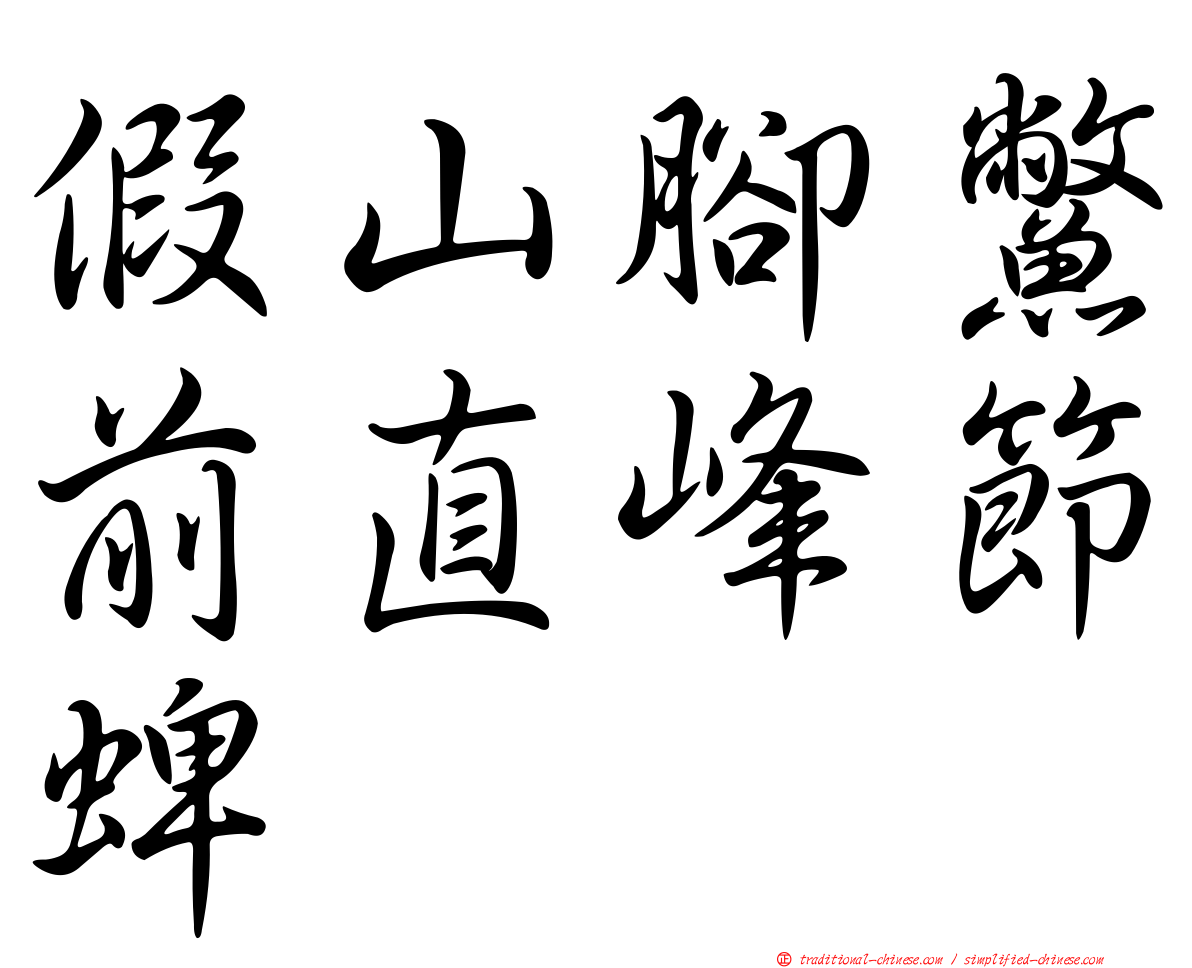 假山腳鱉
前直峰節
蜱
㊣ traditional-chinese.com / simplified-chinese.com